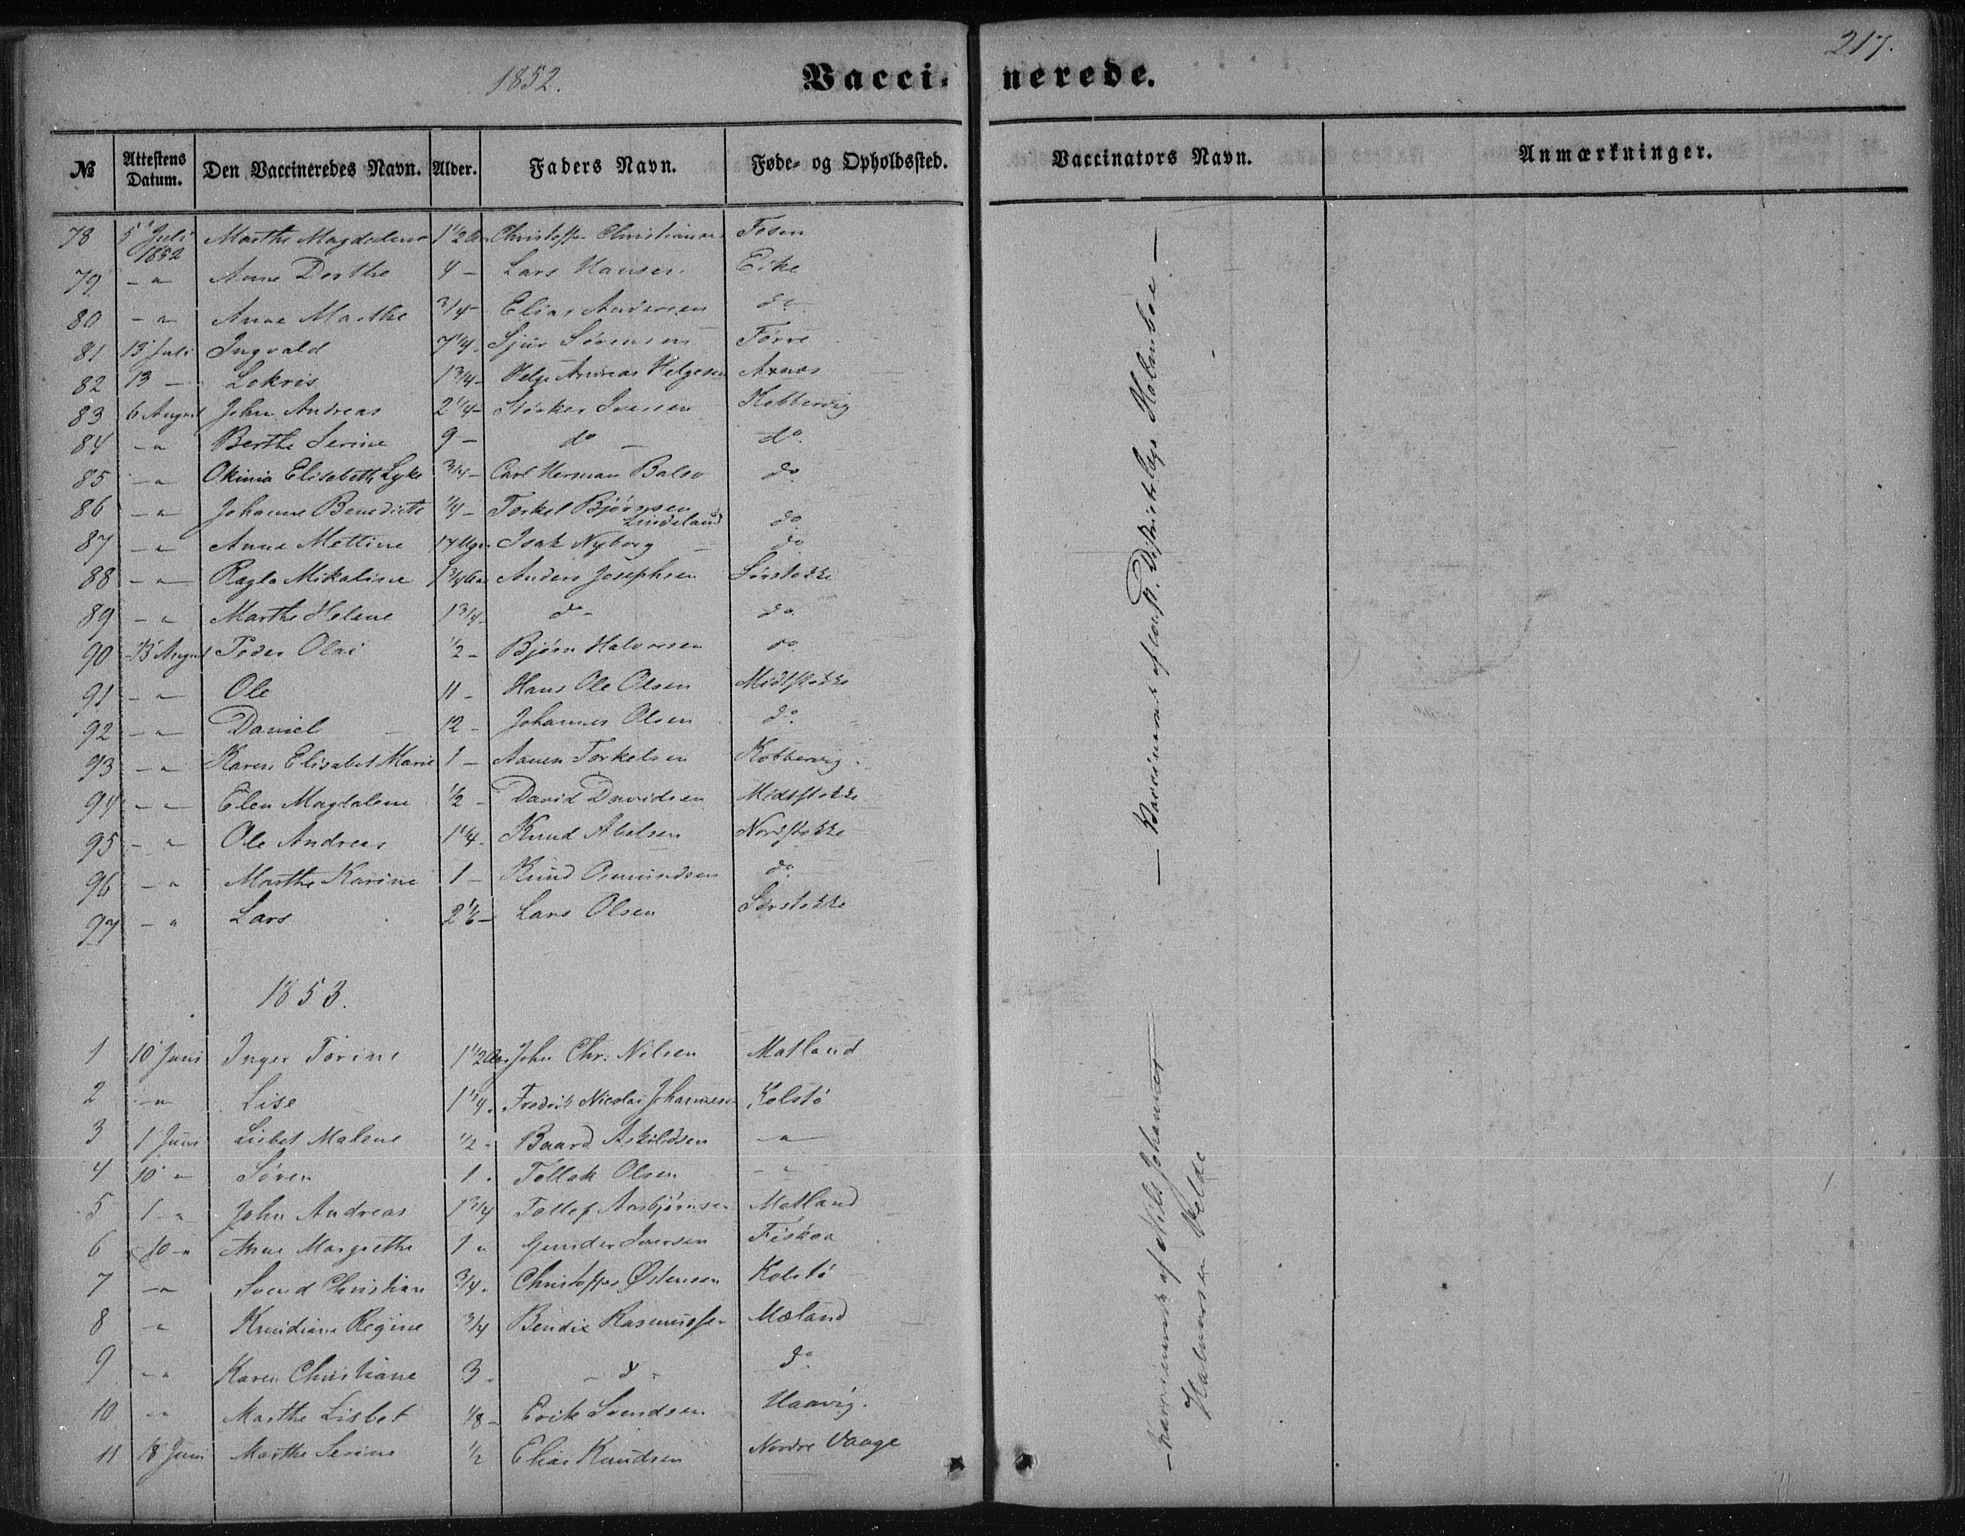 217.
1852.
Vaccinerede.
№ Attestens Datum. Den Vaccineredes Navn. Alder. Faders Navn. Føde- og Opholdssted. Vaccinators Navn. Anmærkninger.
78 5' Juli 1852 Marthe Magdalene 1 1/2 Aar Christoffer Christiansen Fosen
79 -"- Anne Dorthe 4 - Lars Hansen Eike
80 -"- Anne Marthe 3/4 - Elias Andersen do
81 13 Juli Ingvald 7 1/4 - Sjur Sørensen Førre
82 13 - Lekris 1 3/4 - Helge Andreas Helgesen Axnæs
83 6 August John Andreas 2 1/4 - Størker Iversen Kobbervig
84 -"- Berthe Serine 9 - do - do.
85 -"- Okinia Elisabeth Lyke 3/4 - Carl Herman Balso do.
86 -"- Johanne Benedicte 1/4 - Torkel Bjørnsen Lindeland do
87 -"- Anna Mettine 17 Uger Isak Nyborg do
88 -"- Ragla Mikaline 1 3/4 Aar Anders Josephsen Sørstokke
89 -"- Marthe Helene 1 3/4 do- do
90 13 August Peder Olai 1/2 - Bjørn Halvorsen do
91 -"- Ole 11 - Hans Ole Olsen Midtstokke
92 -"- Daniel 12 - Johannes Olsen do.
93 -"- Karen Elisabet Marie 1 - Aanen Torkelsen Kobbervig
94 -"- Elen Magdalene 1/2 - David Davidsen Midtstokke
95 -"- Ole Andreas 1 1/4 - Knud Abelsen Nordstokke
96 -"- Marthe Karine 1 - Knud Osmundsen do
97 -"- Lars 2 1/6 - Lars Olsen Sørstokke
— Vaccineret af const. Districtslæge Holmboe —
1853.
1 10 Juni Inger Torine 1 1/2 Aar John Chr: Nilsen Matland
2 -"- Lise 1 1/4. Fredrik Nicolai Johannesen Kolstø
3 1 Juni Lisbet Malene 1/2 - Baard Askildsen -"-
4 10 " Søren 1. Tollak Olsen -"-
5 1 -" John Andreas 1 3/4 Tollef Aasbjørnsen Matland
6 10 -" Anne Margrethe 1 " Gunder Iversen Fiskaa
7 -" Svend Christian 3/4. Christoffer Østensen Kolstø
8 " Knudiane Regine 3/4 Bendix Rasmussen Mæland
9 -" Karen Christiane 3. -"- do.
10 -" Marthe Lisbet 1/8 - Erik Svendsen Haavig.
11 18 Juni Marthe Serine 1/2 Elias Knudsen Nordre Vaage
— Vaccinerede af Nils Johannes
Halvorsen Velde